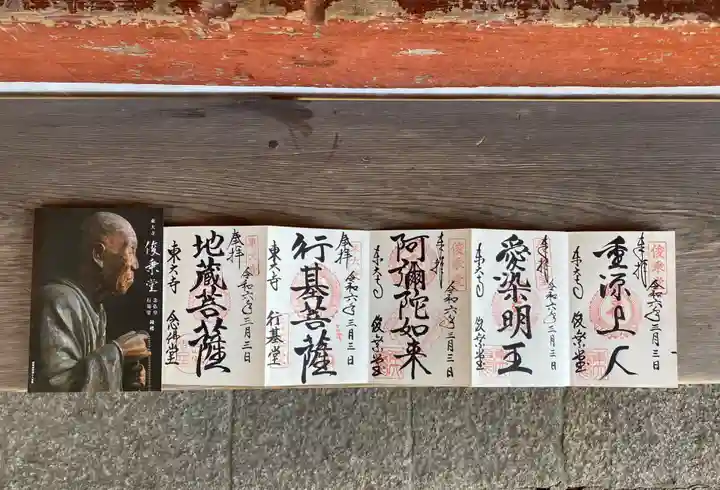 東大寺
俊乗堂
念仏堂
行基堂
奉拝
令和六年三月三日
重源上人
俊乗堂
奉拝
令和六年三月三日
愛染明王
東大寺
俊乗堂
奉拝
令和六年三月三日
阿彌陀如来
東大寺
俊乗堂
奉拝
令和六年三月三日
行基菩薩
東大寺 行基堂
奉拝
令和六年三月三日
地蔵菩薩
東大寺 念佛堂